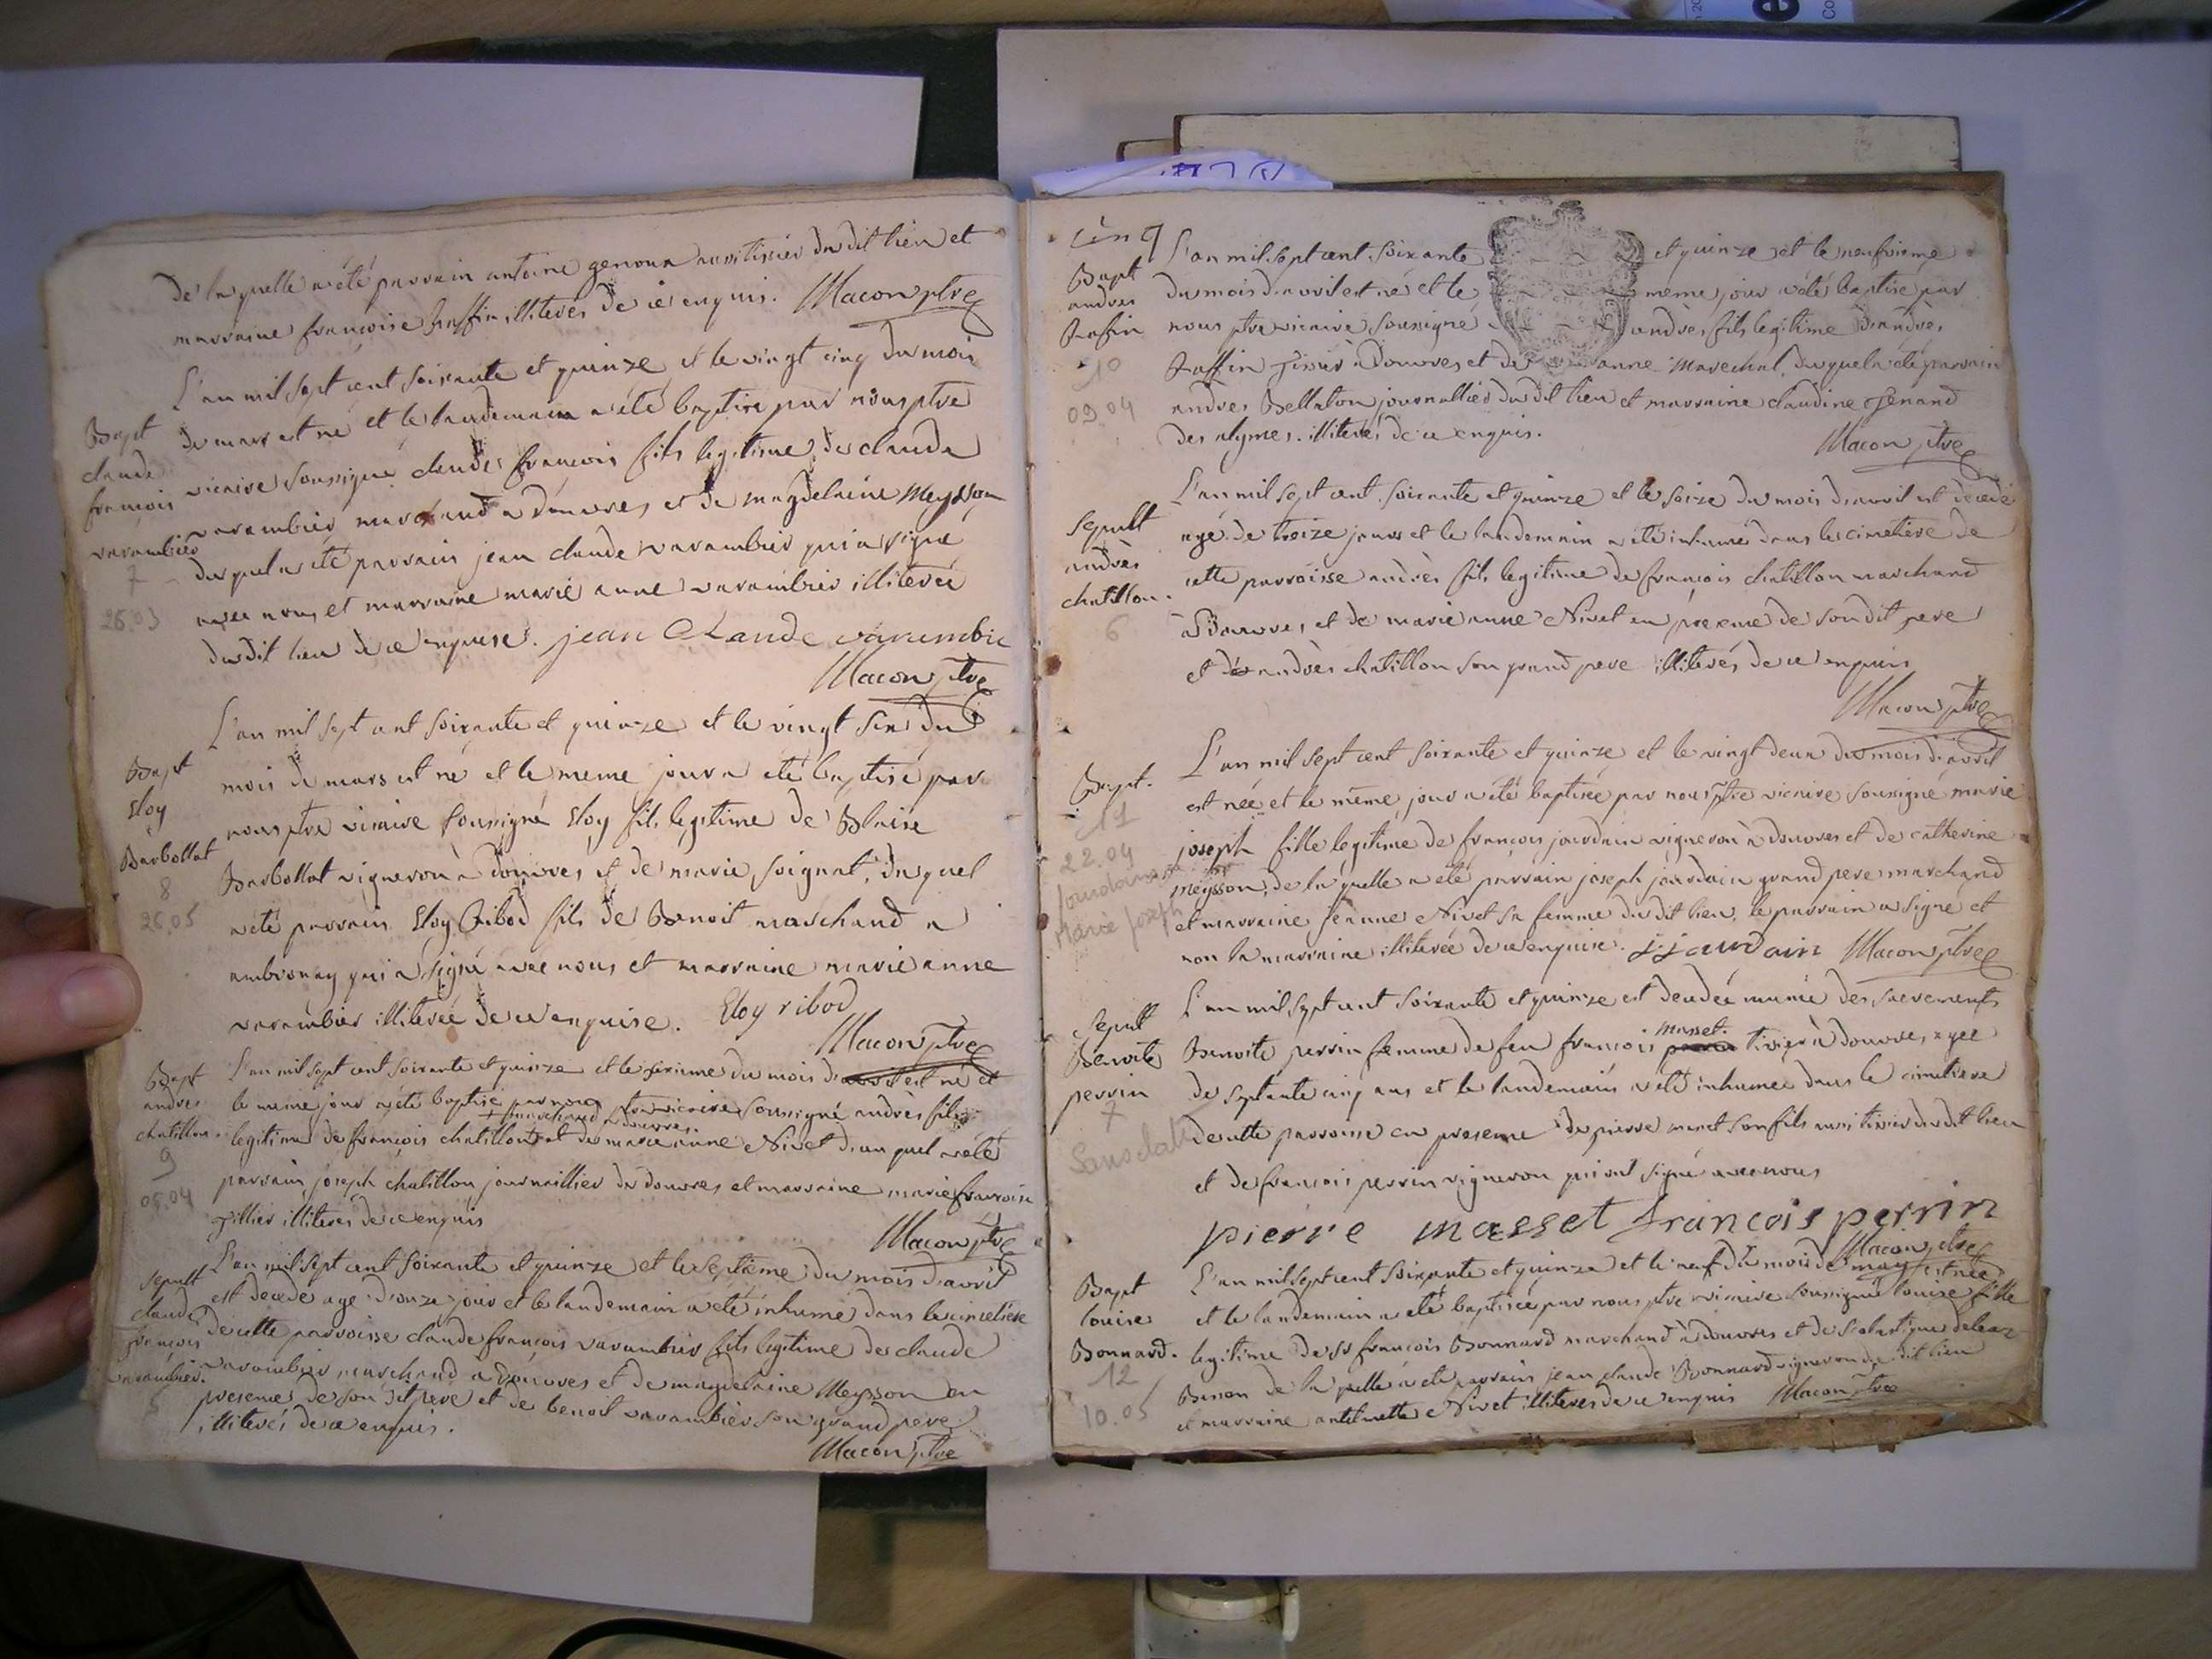 de laquelle a été parrain antoine genoux aussi tixier du dit lieu et
marraine françoise raffin illiterés de ce enquis. Macon ptre
Bapt
claude
françois
varambier
7
26.03
L'an mil sept cent soixante et quinze et le vingt cinq du mois
de mars est né et le landemain a été baptisé par nous ptre
vicaire soussigné claude françois fils legitime de claude
varambier marchand a douvres et de magdelaine Meysson
duquel a été parrain jean claude varambier qui a signé
avec nous et marraine marie anne varambier illiterée
du dit lieu de ce enquise. jean Claude varambie
Macon ptre
Bapt
Eloy
Barbollat
8
26.03
L'an mil sept cent soixante et quinze et le vingt six du
mois de mars est né et le meme jour a été baptisé par
nous ptre vicaire soussigné Eloy fils legitime de Blaise
Barbollat vigneron à douvres et de marie soignat, duquel
a été parrain Eloy Ribod fils de Benoit marchand a
ambronay qui a signé avec nous et marraine marie anne
varambier illiterée de ce enquise. Eloy ribod
Macon ptre
Bapt
andrès
chatillon
9
05.04
L'an mil sept cent soixante et quinze et le du mois d'avril est né et
le meme jour a été baptisé par nous ptre vicaire soussigné andrès fils
+ marchand a douvres.
legitime de françois chatillon + et de marie anne Nivet duquel a été
parrain joseph chatillon journaillier de douvres et marraine marie françoise
illiterés de ce enquis
Macon ptre
Sepult
claude
françois
varambier
5
L'an mil sept cent soixante et quinze et le septième du mois d'avril
est decedé agé d'onze jour et le landemain a été inhumé dans le cimetière
de cette parroisse claude françois varambier fils legitime de claude
varambier marchand a Douvres et de magdelaine Meysson en
presence de son dit pere et de benoit varambier son grand pere
illiterés de ce enquis.
Macon ptre
cinq
Bapt
andrès
Rafin
10
09.04
L'an mil sept cent soixante et quinze et le neufvieme
du mois d'avril est né et le meme jour a été baptisé par
nous ptre vicaire soussigné andrès fils legitime d'andrès
Raffin Tissier à Douvres et de anne Marechal, duquel a été parrain
andrès Bellaton journallier du dit lieu et marraine claudine Genand
des alymes. illiterés de ce enquis.
Macon ptre
Sepult
andrès
chatillon.
6
L'an mil sept cent soixante et quinze et le seize du mois d'avril est decedé
agé de treize jours et le landemain a été inhumé dans le cimetière de
cette parroisse andrès fils legitime de françois chatillon marchand
à Douvres, et de marie anne Nivet en presence de son dit pere
et de andrès chatillon son grand pere illiterés de ce enquis
Macon ptre
Bapt.
11
22.04
Jourdain
Marie Joseph
L'an mil sept cent soixante et quinze et le vingt deux du mois d'avril
est née et le même jour a été baptisée par nous ptre vicaire soussigné marie
joseph fille legitime de françois jourdain vigneron à douvres et de catherine
meysson, de la quelle a été parrain joseph jourdain grand pere marchand
et marraine jeanne Nivet sa femme du dit lieu, le parrain a signé et
non la marraine illiterée de ce enquise. j jourdain Macon ptre
Sepult
Benoite
perrin
7
Sans date
L'an mil sept cent soixante et quinze est decedée munie des sacrements
Benoite perrin femme de feu françois masset tixier à douvres, agée
de septante cinq ans et le landemain a été inhumée dans le cimetiere
de cette parroisse en presence de pierre masset son fils aussi tixier du dit lieu
et de françois perrin vigneron qui ont signé avec nous
pierre masset francois perrin
Macon ptre
Bapt
louise
Bonnard.
12
10.05
L'an mil sept cent soixante et quinze et le neuf du mois de may est née
et le landemain a été baptisée par nous ptre vicaire soussigné louise fille
legitime de sr françois Bonnard marchand à douvres et de Scolastique
de la quelle a été parrain jean claude Bonnard vigneron du dit lieu
et marraine anthelmette Nivet illiterés de ce enquis Macon ptre